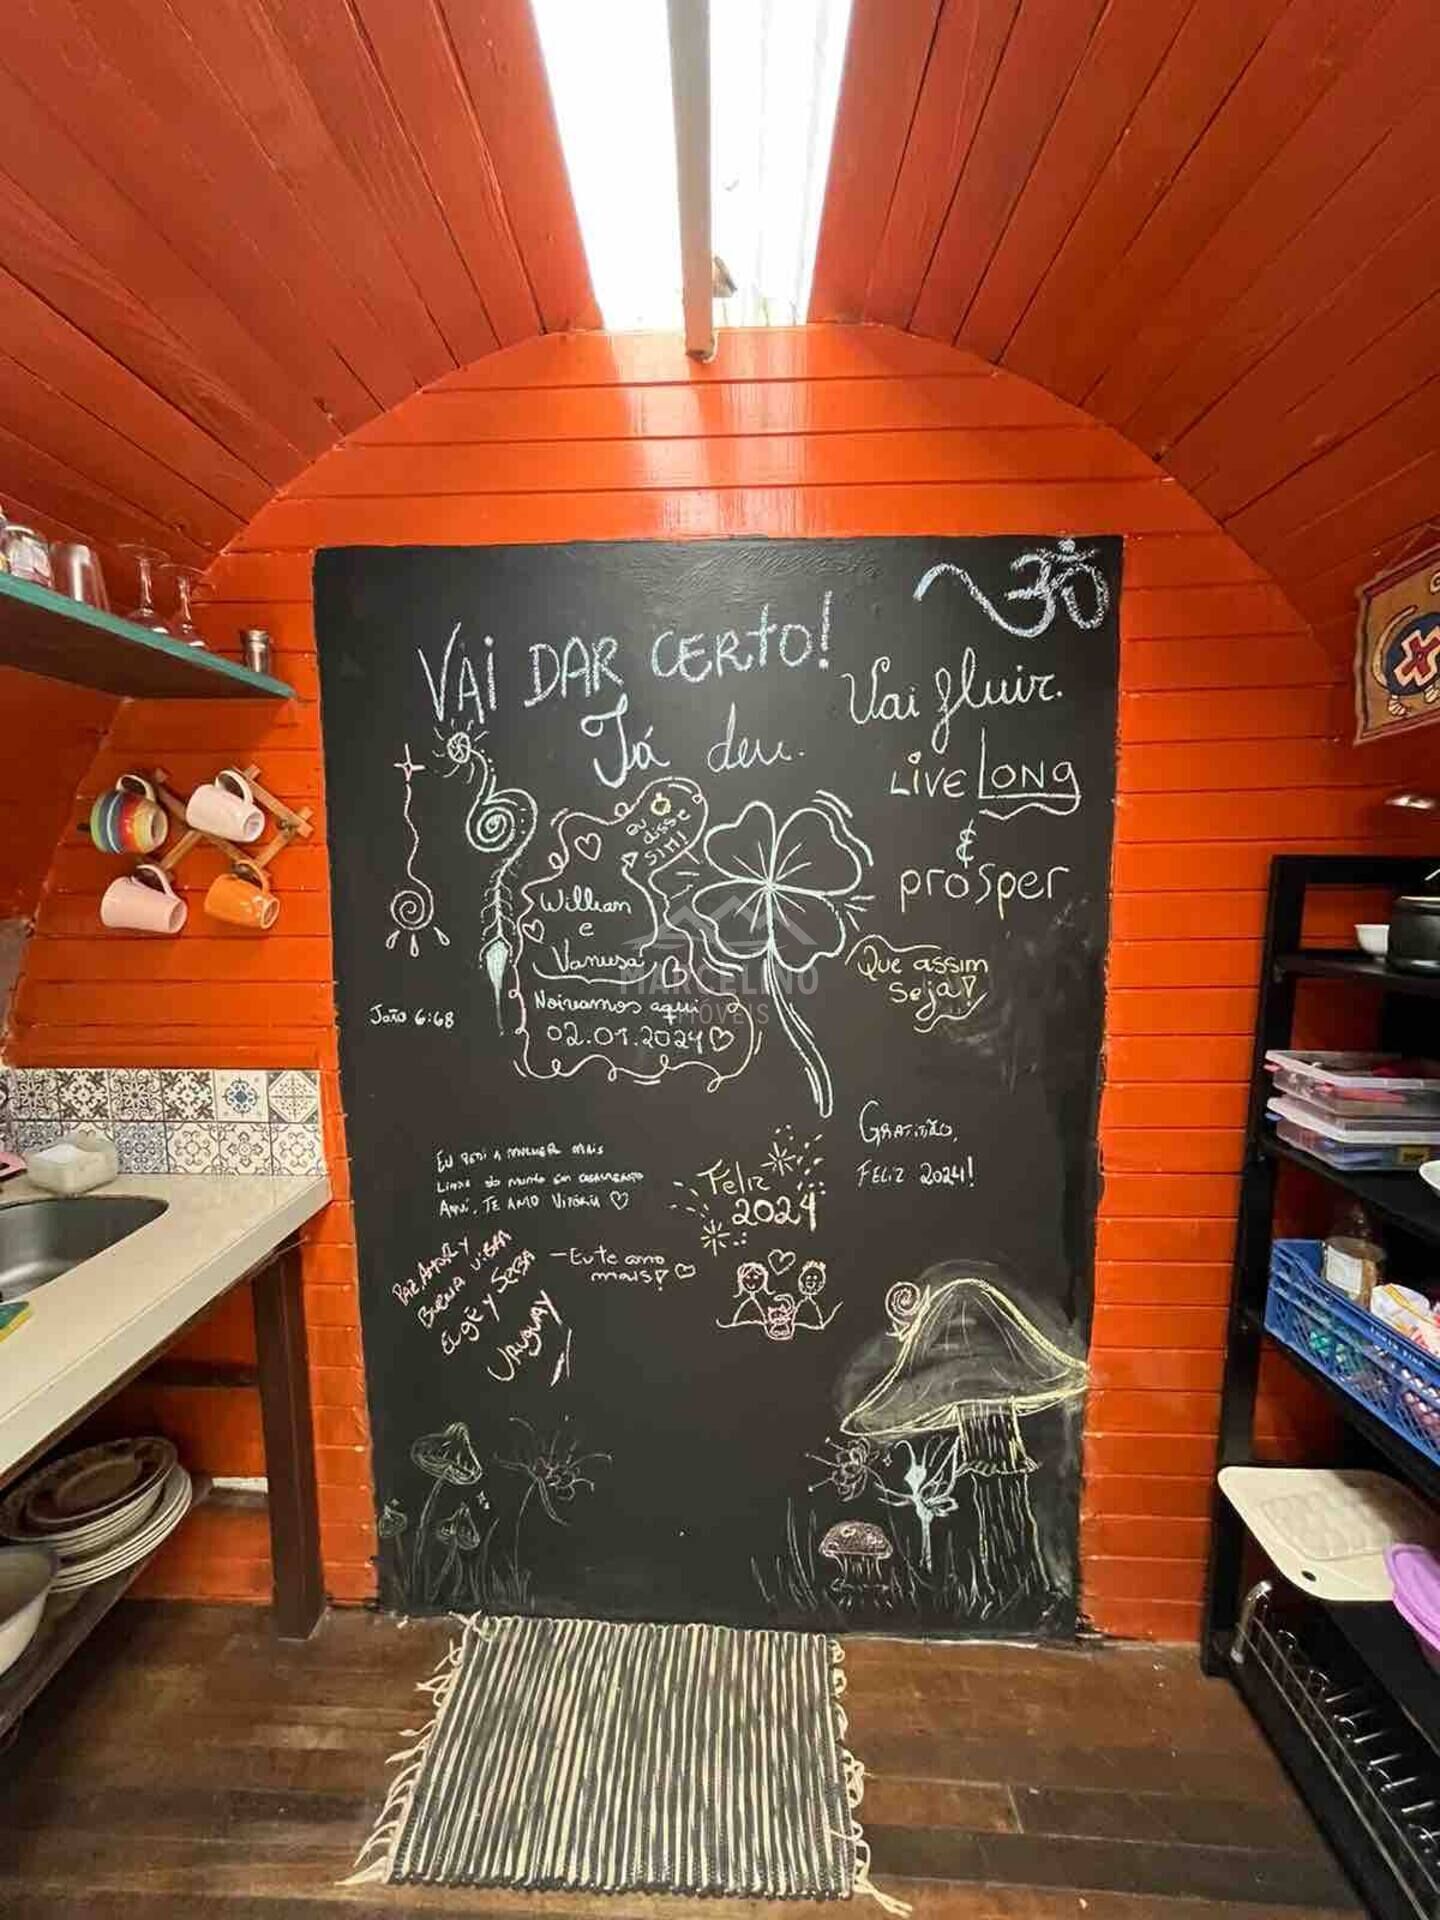 ॐ
VAI DAR CERTO!
Já deu.
Vai fluir.
LIVE LONG
&
prosper
eu
disse
SIM!
William
e
Vanusa
Noivamos aqui
02.01.2024
Que assim
seja!
João 6:68
MARCELINO
IMÓVEIS
EU PEDI A MULHER MAIS
LINDA DO MUNDO EM CASAMENTO
AQUI. TE AMO VITÓRIA
- Eu te amo
mais!
Feliz
2024
GRATIDÃO,
FELIZ 2024!
PAZ, AMOR Y
BUENA VIBRA
EUGE Y SEBA
URUGUAY